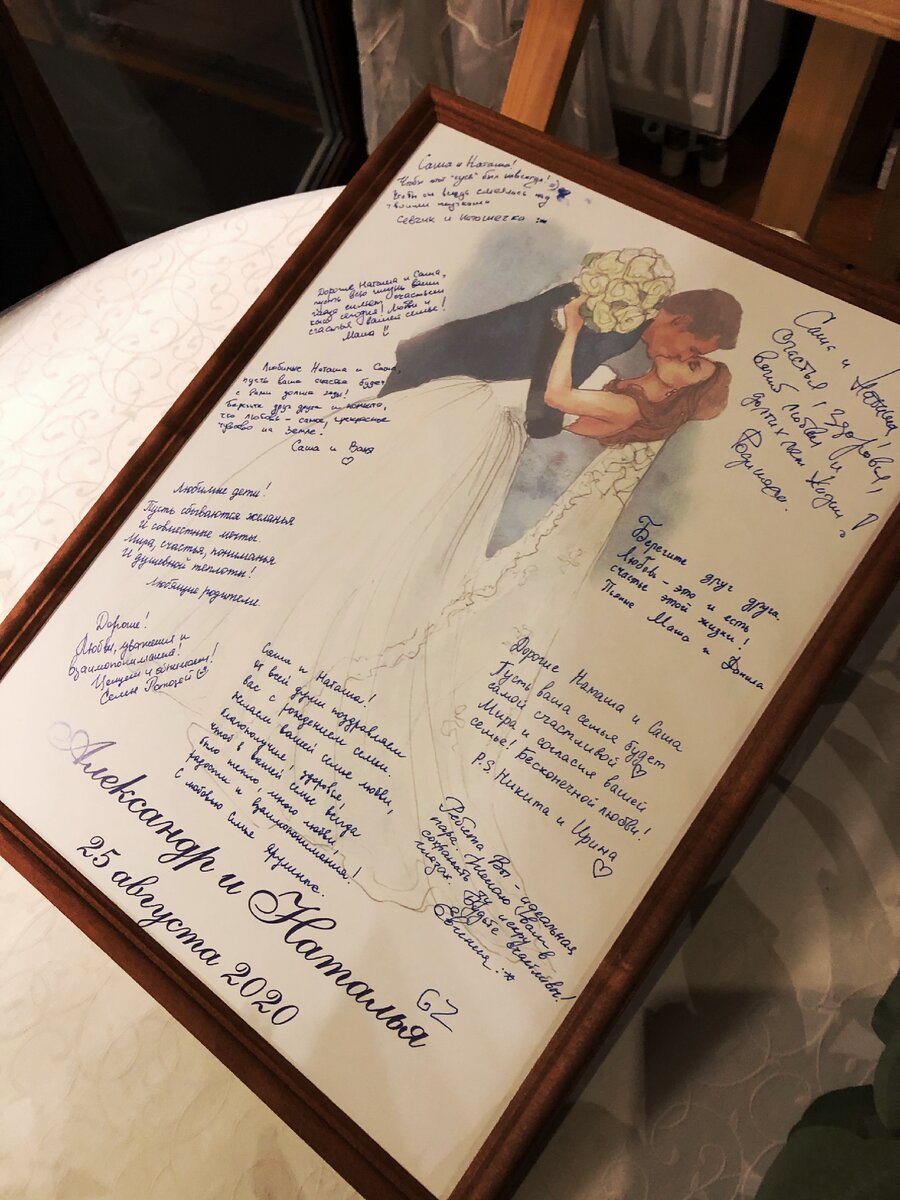 Саша и Наташа!
Чтобы этот "гусь" был навсегда! :)
Чтобы он всегда смеялись над
твоими шутками
Севчик и Наташечка :*
Дорогие Наташа и Саша,
пусть всю жизнь ваши
глаза сияют счастьем
как сегодня! Любви и
счастья вашей семье!
Маша !!
Любимые Наташа и Саша,
пусть ваше счастье будет
с вами долгие годы!
Берегите друг друга и помните,
что любовь - самое прекрасное
чувство на Земле.
Саша и Ваня
Любимые дети!
Пусть сбываются желанья
И совместные мечты.
Мира, счастья, пониманья
И душевной теплоты!
Любящие родители.
Дорогие!
Любви, уважения и
взаимопонимания!
Целуем и обнимаем!
Саша и Наташа
Счастья! Здоровья,
вечной любви и
долгих лет жизни!
Берегите друг друга.
Любовь - это и есть
счастье этой жизни!
Маша и Данила
Саша и Наташа!
От всей души поздравляем
вас с рождением семьи.
Желаем вашей семье любви,
благополучия, здоровья!
Чтоб в вашей семье всегда
было тепло, много любви
радости и взаимопонимания!
С любовью семья
Дорогие Наташа и Саша
Пусть ваша семья будет
самой счастливой
Мира и согласия вашей
семье! Бесконечной любви!
P.S. Никита и Ирина
Ребята Вы - идеальная
пара. Желаю вам
сохранить эту искру в
глазах. Будьте счастливы!
Евгения :*
GZ
Александр и Наталья
25 августа 2020